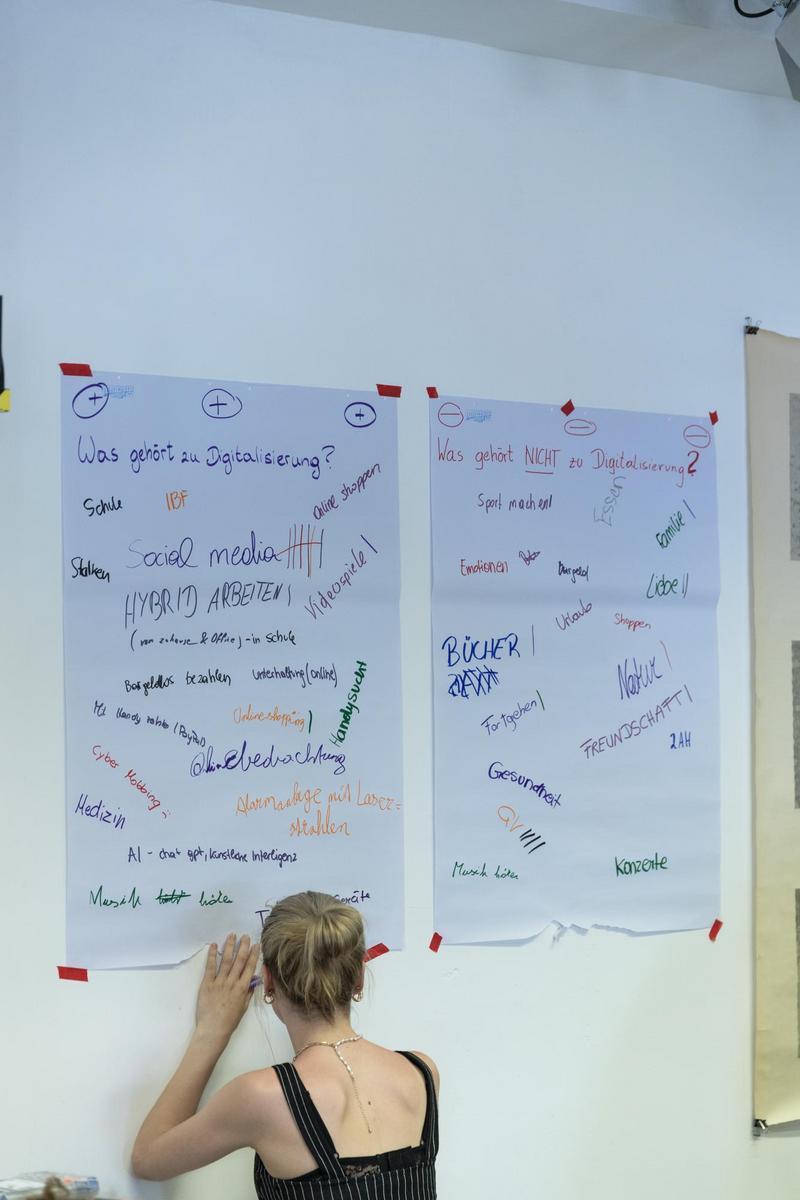 + + +
Was gehört zu Digitalisierung?
Online shoppen
Schule
IBF
Social media
Stalken
Videospiele
HYBRID ARBEITEN
(von zuhause & Office) - in Schule
Bargeldlos bezahlen
Unterhaltung (online)
Handysucht
Mit Handy zahlen (PayPal)
Online-shopping
Cyber Mobbing
Medizin
Alarmanlage mit Laser=
strahlen
AI - chat gpt, künstliche Intelligenz
Musik hören
- - -
Was gehört NICHT zu Digitalisierung?
Sport machen
Essen
Familie
Emotionen
Bargeld
Liebe
Urlaub
Shoppen
BÜCHER
Natur
Fortgehen
FREUNDSCHAFT
2AH
Gesundheit
GV
Musik hören
Konzerte